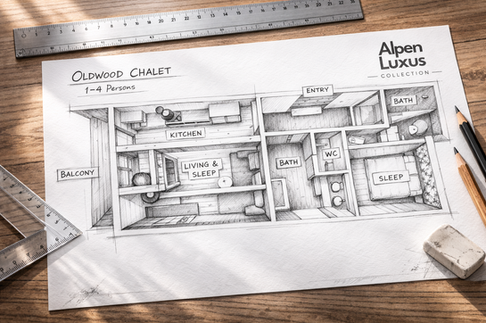 OLDWOOD CHALET
1-4 Persons
Alpen
Luxus
COLLECTION
ENTRY
BATH
KITCHEN
LIVING &
SLEEP
BATH
WC
SLEEP
BALCONY